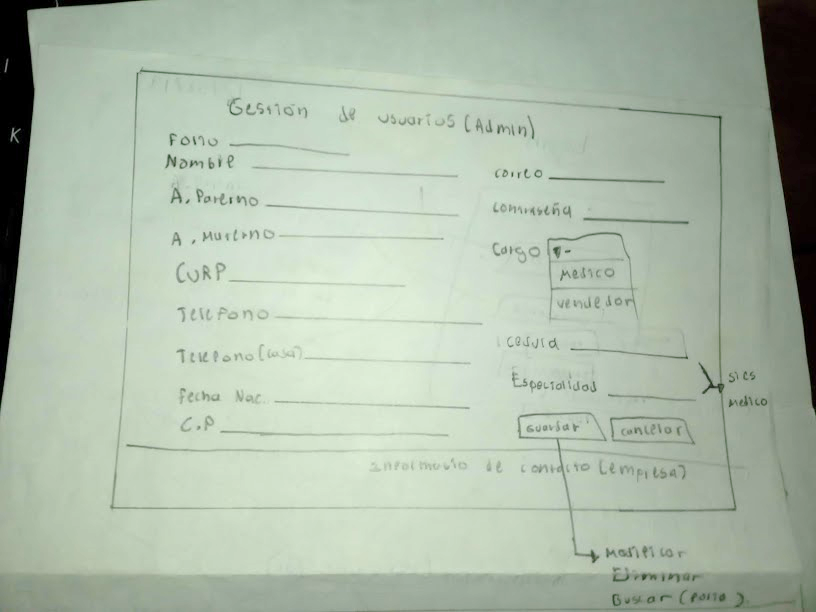 Gestión de usuarios (Admin)
Folio
Nombre
A. Paterno
A. Materno
CURP
Telefono
Telefono (casa)
Fecha Nac.
C.P
correo
contraseña
Cargo
Medico
vendedor
cedula
Especialidad
si es
Medico
Guardar
cancelar
Informacio de contacto (empresa)
Modificar
Eliminar
Buscar (Folio)
K